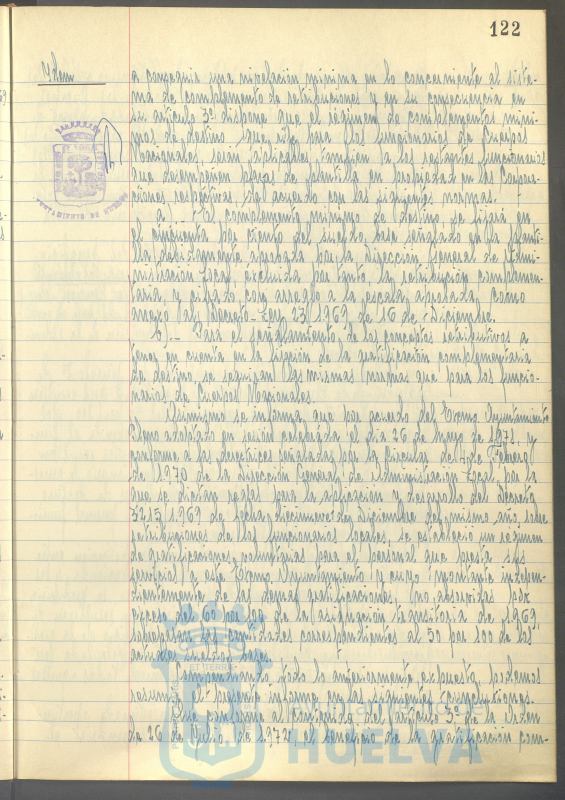 122
Idem
a conseguir una nivelación mínima en lo concerniente al siste-
ma de complemento de retribuciones y en su consecuencia en
su artículo 3º dispone que el régimen de complementos míni-
mos de destino que rija para los funcionarios de Cuerpos
Nacionales, serán aplicables también a los restantes funcionarios
que desempeñen plazas de plantilla en propiedad en las Corpora-
ciones respectivas, de acuerdo con las siguientes normas.
a).- El complemento mínimo de destino se fijará en
el cincuenta por ciento del sueldo base señalado en la planti-
lla debidamente aprobada por la Dirección General de Admi-
nistración Local, excluida por tanto, la retribución complemen-
taria, y cifrado con arreglo a la escala aprobada como
anexo al Decreto-Ley 23/1969 de 16 de Diciembre.
b).- Para el señalamiento de los conceptos retributivos a
tener en cuenta en la fijación de la gratificación complementaria
de destino, se seguirán las mismas normas que para los funcio-
narios de Cuerpos Nacionales.
Asimismo se informa que por acuerdo del Excmo Ayuntamiento
Pleno adoptado en sesión celebrada el día 26 de Mayo de 1971, y
conforme a las directrices señaladas por la Circular de 4 de Febrero
de 1970 de la Dirección General de Administración Local por la
que se dictan reglas para la aplicación y desarrollo del Decreto
3215/1969 de fecha diecinueve de Diciembre del mismo año, sobre
retribuciones de los funcionarios locales, se estableció un régimen
de gratificaciones voluntarias para el personal que presta sus
servicios a este Excmo Ayuntamiento y cuyo montante indepen-
dientemente de las demás gratificaciones, (no absorbidas por
exceso del 60 por 100 de la asignación transitoria de 1969
las cantidades correspondientes al 50 por 100 de los
actuales sueldos base.
todo lo anteriormente expuesto, podemos
resumir el presente informe en las siguientes conclusiones.
conforme al contenido del artículo 3º de la Orden
de 26 de Julio de 1972, el beneficio de la gratificación com-
AYUNTAMIENTO DE HUELVA
HUELVA